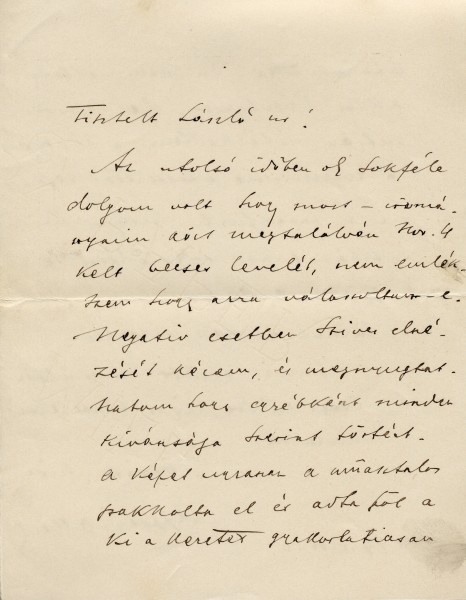 Tisztelt László ur!
Az utolsó időben oly sokféle
dolgom volt hogy most – iromá-
nyaim közt megtalálván Nov. 4
kelt becses levelét, nem emlék-
szem hogy arra válaszoltam-e.
Negativ esetben szives elné-
zését kérem, és megnyugtat-
hatom hogy egyébként minden
kivánsága szerint történt.
A képet ugyanaz a műasztalos
pakkolta el és adta föl a
ki a keretet gyakorlatiasan